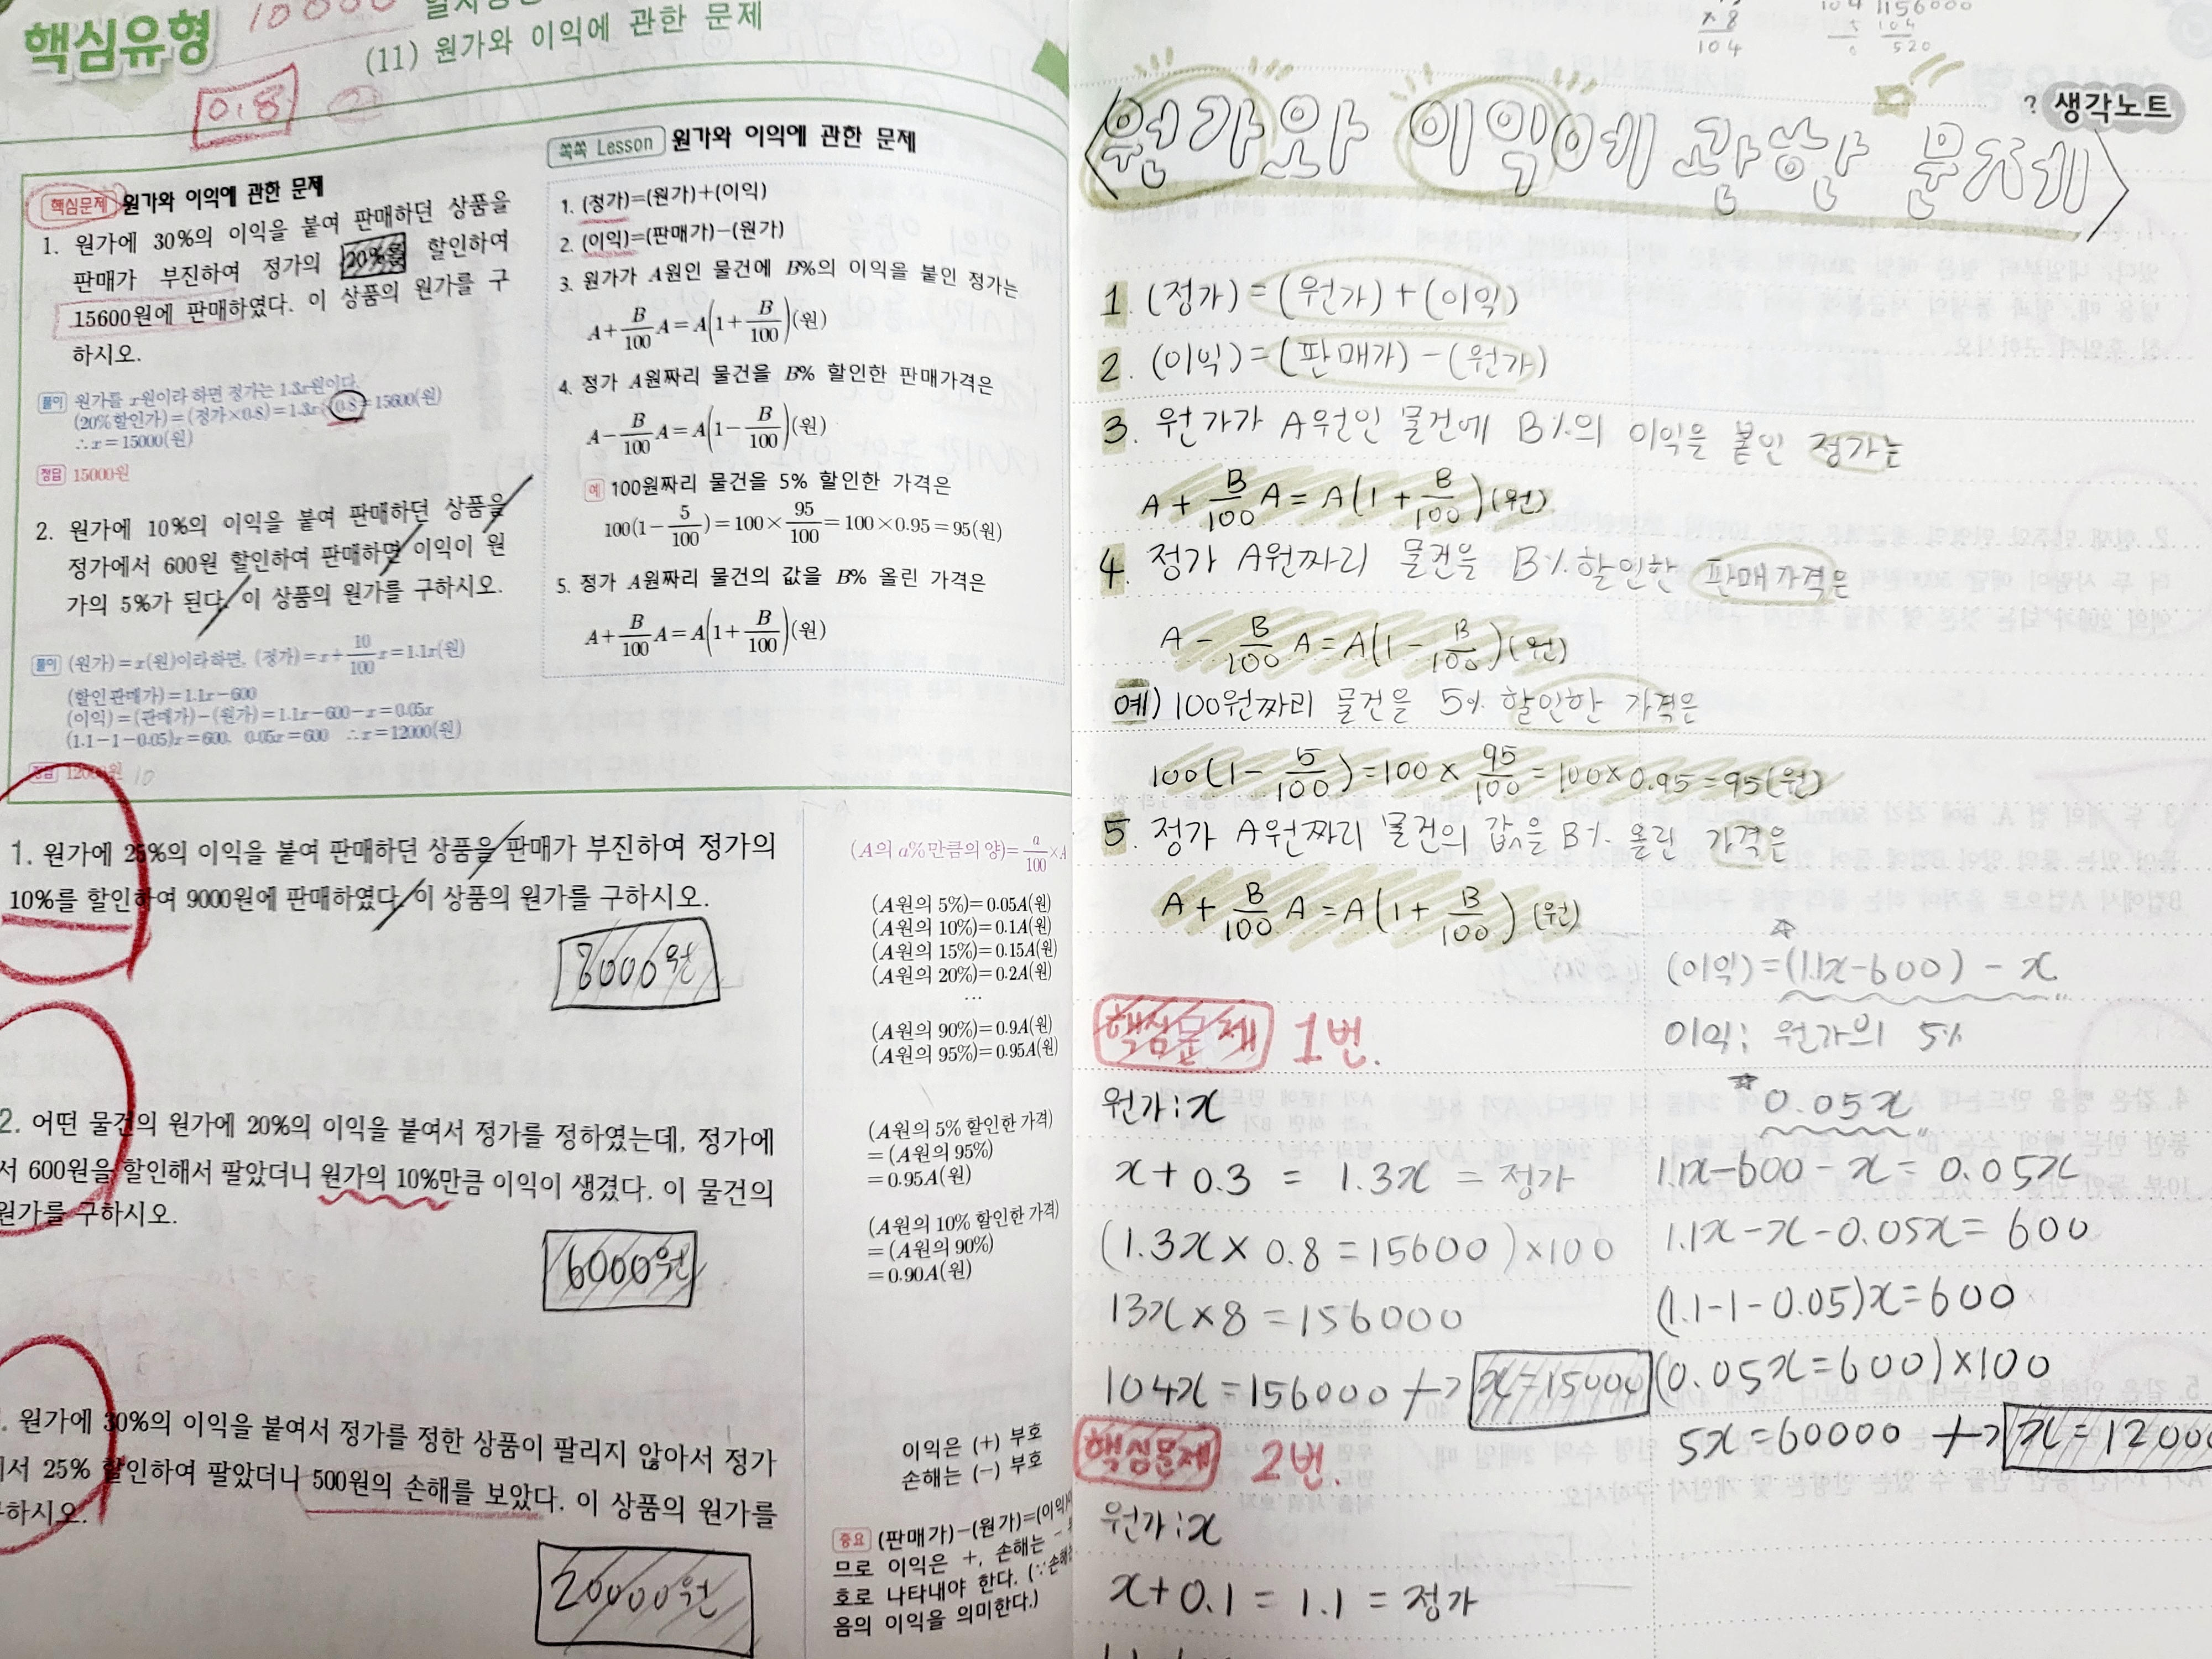 핵심유형
10000
(11) 원가와 이익에 관한 문제
0.8
핵심문제 원가와 이익에 관한 문제
1. 원가에 30%의 이익을 붙여 판매하던 상품을
판매가 부진하여 정가의 20%를 할인하여
15600원에 판매하였다. 이 상품의 원가를 구
하시오.
풀이 원가를 x원이라 하면 정가는 1.3x원이다.
(20%할인가)=(정가×0.8)=1.3x×0.8=15600(원)
∴x=15000(원)
정답 15000원
2. 원가에 10%의 이익을 붙여 판매하던 상품을
정가에서 600원 할인하여 판매하면 이익이 원
가의 5%가 된다. 이 상품의 원가를 구하시오.
풀이 (원가)=x(원)이라하면, (정가)=x+10/100x=1.1x(원)
(할인판매가)=1.1x-600
(이익)=(판매가)-(원가)=1.1x-600-x=0.05x
(1.1-1-0.05)x=600, 0.05x=600 ∴x=12000(원)
정답 12000원 10
쏙쏙 Lesson 원가와 이익에 관한 문제
1. (정가)=(원가)+(이익)
2. (이익)=(판매가)-(원가)
3. 원가가 A원인 물건에 B%의 이익을 붙인 정가는
A+B/100A=A(1+B/100)(원)
4. 정가 A원짜리 물건을 B% 할인한 판매가격은
A-B/100A=A(1-B/100)(원)
예 100원짜리 물건을 5% 할인한 가격은
100(1-5/100)=100×95/100=100×0.95=95(원)
5. 정가 A원짜리 물건의 값을 B% 올린 가격은
A+B/100A=A(1+B/100)(원)
1. 원가에 25%의 이익을 붙여 판매하던 상품을 판매가 부진하여 정가의
10%를 할인하여 9000원에 판매하였다. 이 상품의 원가를 구하시오.
8000원
2. 어떤 물건의 원가에 20%의 이익을 붙여서 정가를 정하였는데, 정가에
서 600원을 할인해서 팔았더니 원가의 10%만큼 이익이 생겼다. 이 물건의
원가를 구하시오.
6000원
. 원가에 30%의 이익을 붙여서 정가를 정한 상품이 팔리지 않아서 정가
에서 25% 할인하여 팔았더니 500원의 손해를 보았다. 이 상품의 원가를
구하시오.
20000원
(A의 a%만큼의 양)=a/100×A
(A원의 5%)=0.05A(원)
(A원의 10%)=0.1A(원)
(A원의 15%)=0.15A(원)
(A원의 20%)=0.2A(원)
...
(A원의 90%)=0.9A(원)
(A원의 95%)=0.95A(원)
(A원의 5% 할인한 가격)
=(A원의 95%)
=0.95A(원)
(A원의 10% 할인한 가격)
=(A원의 90%)
=0.90A(원)
이익은 (+) 부호
손해는 (-) 부호
중요 (판매가)-(원가)=(이익)
므로 이익은 +, 손해는 -
호로 나타내야 한다. (∵손해
음의 이익을 의미한다.)
×8
104
104 1156000
104
520
? 생각노트
<원가와 이익에 관한 문제>
1. (정가)=(원가)+(이익)
2. (이익)=(판매가)-(원가)
3. 원가가 A원인 물건에 B%의 이익을 붙인 정가는
A+B/100A=A(1+B/100)(원)
4. 정가 A원짜리 물건을 B% 할인한 판매가격은
A-B/100A=A(1-B/100)(원)
예) 100원짜리 물건을 5% 할인한 가격은
100(1-5/100)=100×95/100=100×0.95=95(원)
5. 정가 A원짜리 물건의 값을 B% 올린 가격은
A+B/100A=A(1+B/100)(원)
핵심문제 1번.
원가:x
x+0.3 = 1.3x = 정가
(1.3x×0.8=15600)×100
13x×8=156000
104x=156000 → x=15000
핵심문제 2번.
원가:x
x+0.1=1.1=정가
(이익)=(1.1x-600)-x
이익: 원가의 5%
0.05x
1.1x-600-x=0.05x
1.1x-x-0.05x=600
(1.1-1-0.05)x=600
(0.05x=600)×100
5x=60000 → x=12000